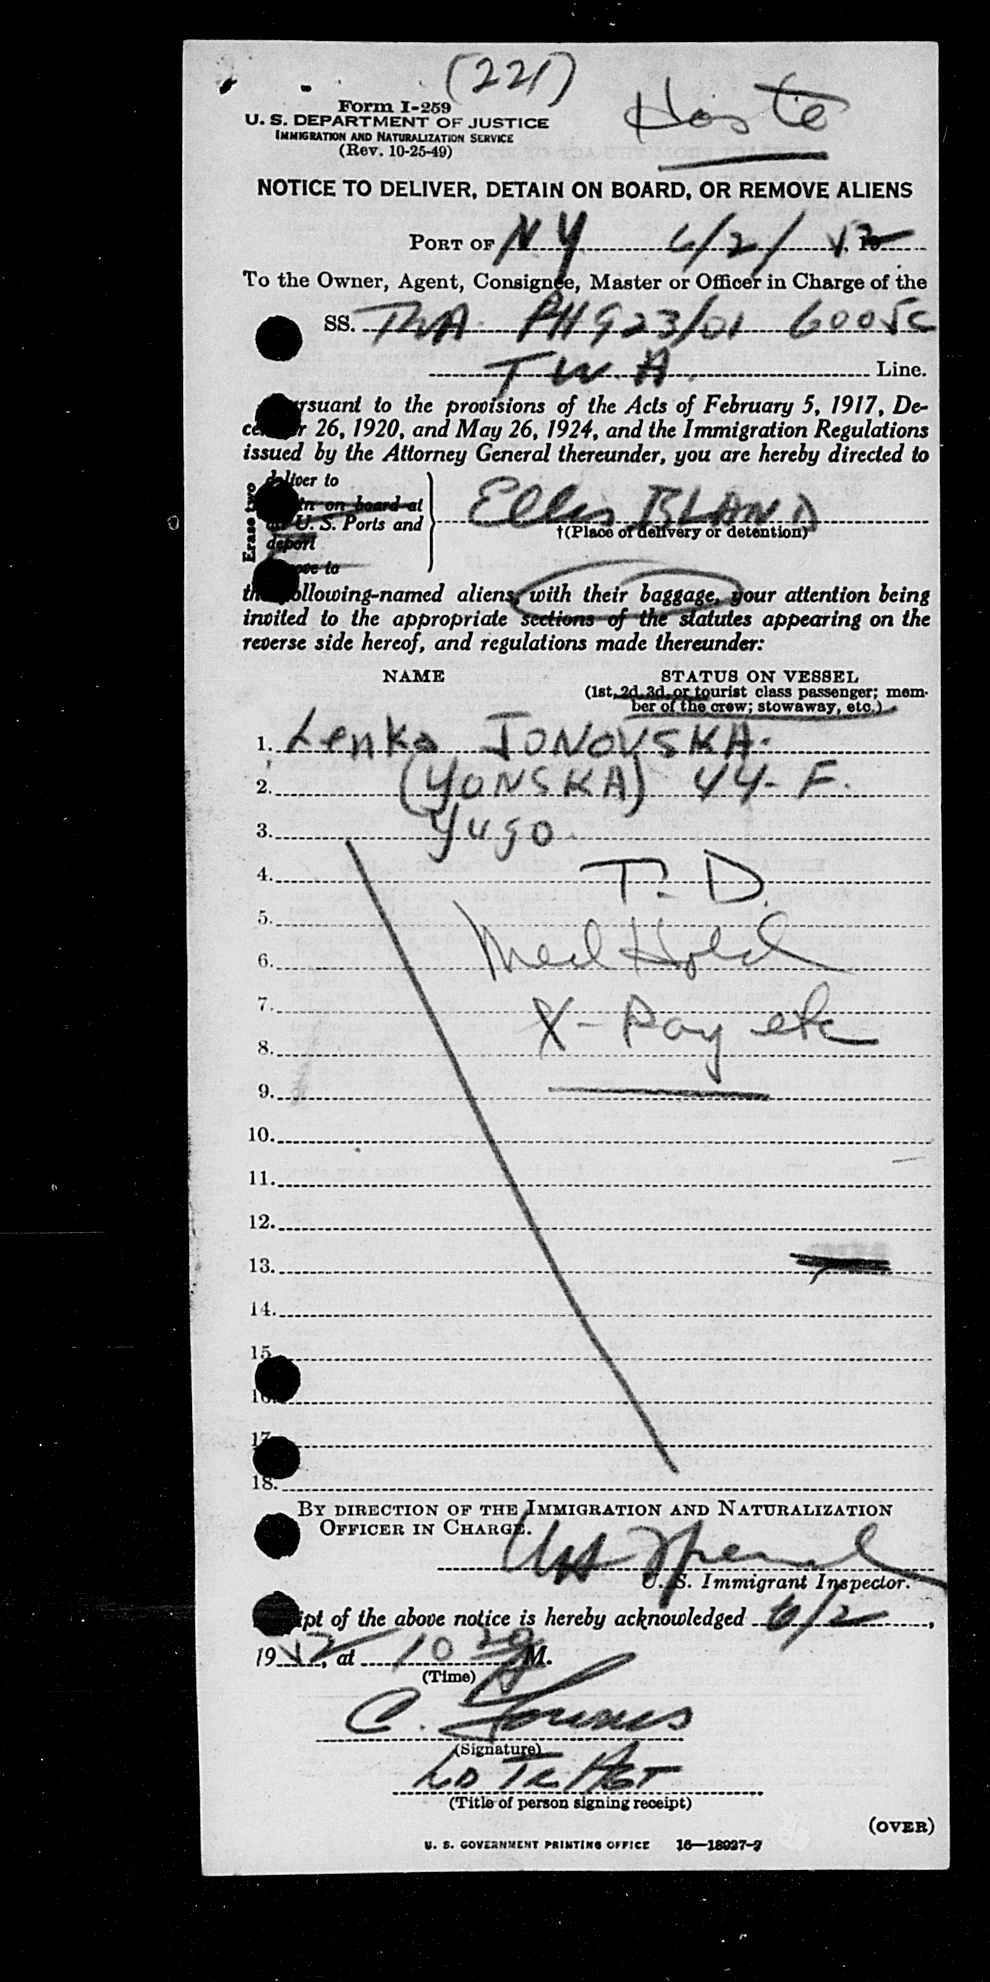 (221)
Form I-259
U. S. DEPARTMENT OF JUSTICE
IMMIGRATION AND NATURALIZATION SERVICE
(Rev. 10-25-49)
NOTICE TO DELIVER, DETAIN ON BOARD, OR REMOVE ALIENS
PORT OF NY 6/2/52
To the Owner, Agent, Consignee, Master or Officer in Charge of the
SS. TWA PH 923/01 6005C
TWA. Line.
rsuant to the provisions of the Acts of February 5, 1917, De-
r 26, 1920, and May 26, 1924, and the Immigration Regulations
issued by the Attorney General thereunder, you are hereby directed to
Erase two
deliver to
on board at
U. S. Ports and
deport
to
Ellis ISLAND
†(Place of delivery or detention)
the following-named aliens, with their baggage, your attention being
invited to the appropriate sections of the statutes appearing on the
reverse side hereof, and regulations made thereunder:
NAME STATUS ON VESSEL
(1st, 2d, 3d, or tourist class passenger; mem-
ber of the crew; stowaway, etc.)
1. Lenka JONOVSKA.
2. (YONSKA) 44- F.
3. Yugo.
4. T. D.
5.
6. Med Hold
7.
8. X-Ray etc
9.
10.
11.
12.
13.
14.
15.
16.
17.
18.
BY DIRECTION OF THE IMMIGRATION AND NATURALIZATION
OFFICER IN CHARGE.
U. S. Immigrant Inspector.
ipt of the above notice is hereby acknowledged 6/2,
1952, at 10 20 A M.
(Time)
C.
(Signature)
LD TC AGT
(Title of person signing receipt)
(OVER)
U. S. GOVERNMENT PRINTING OFFICE 16—18027-7